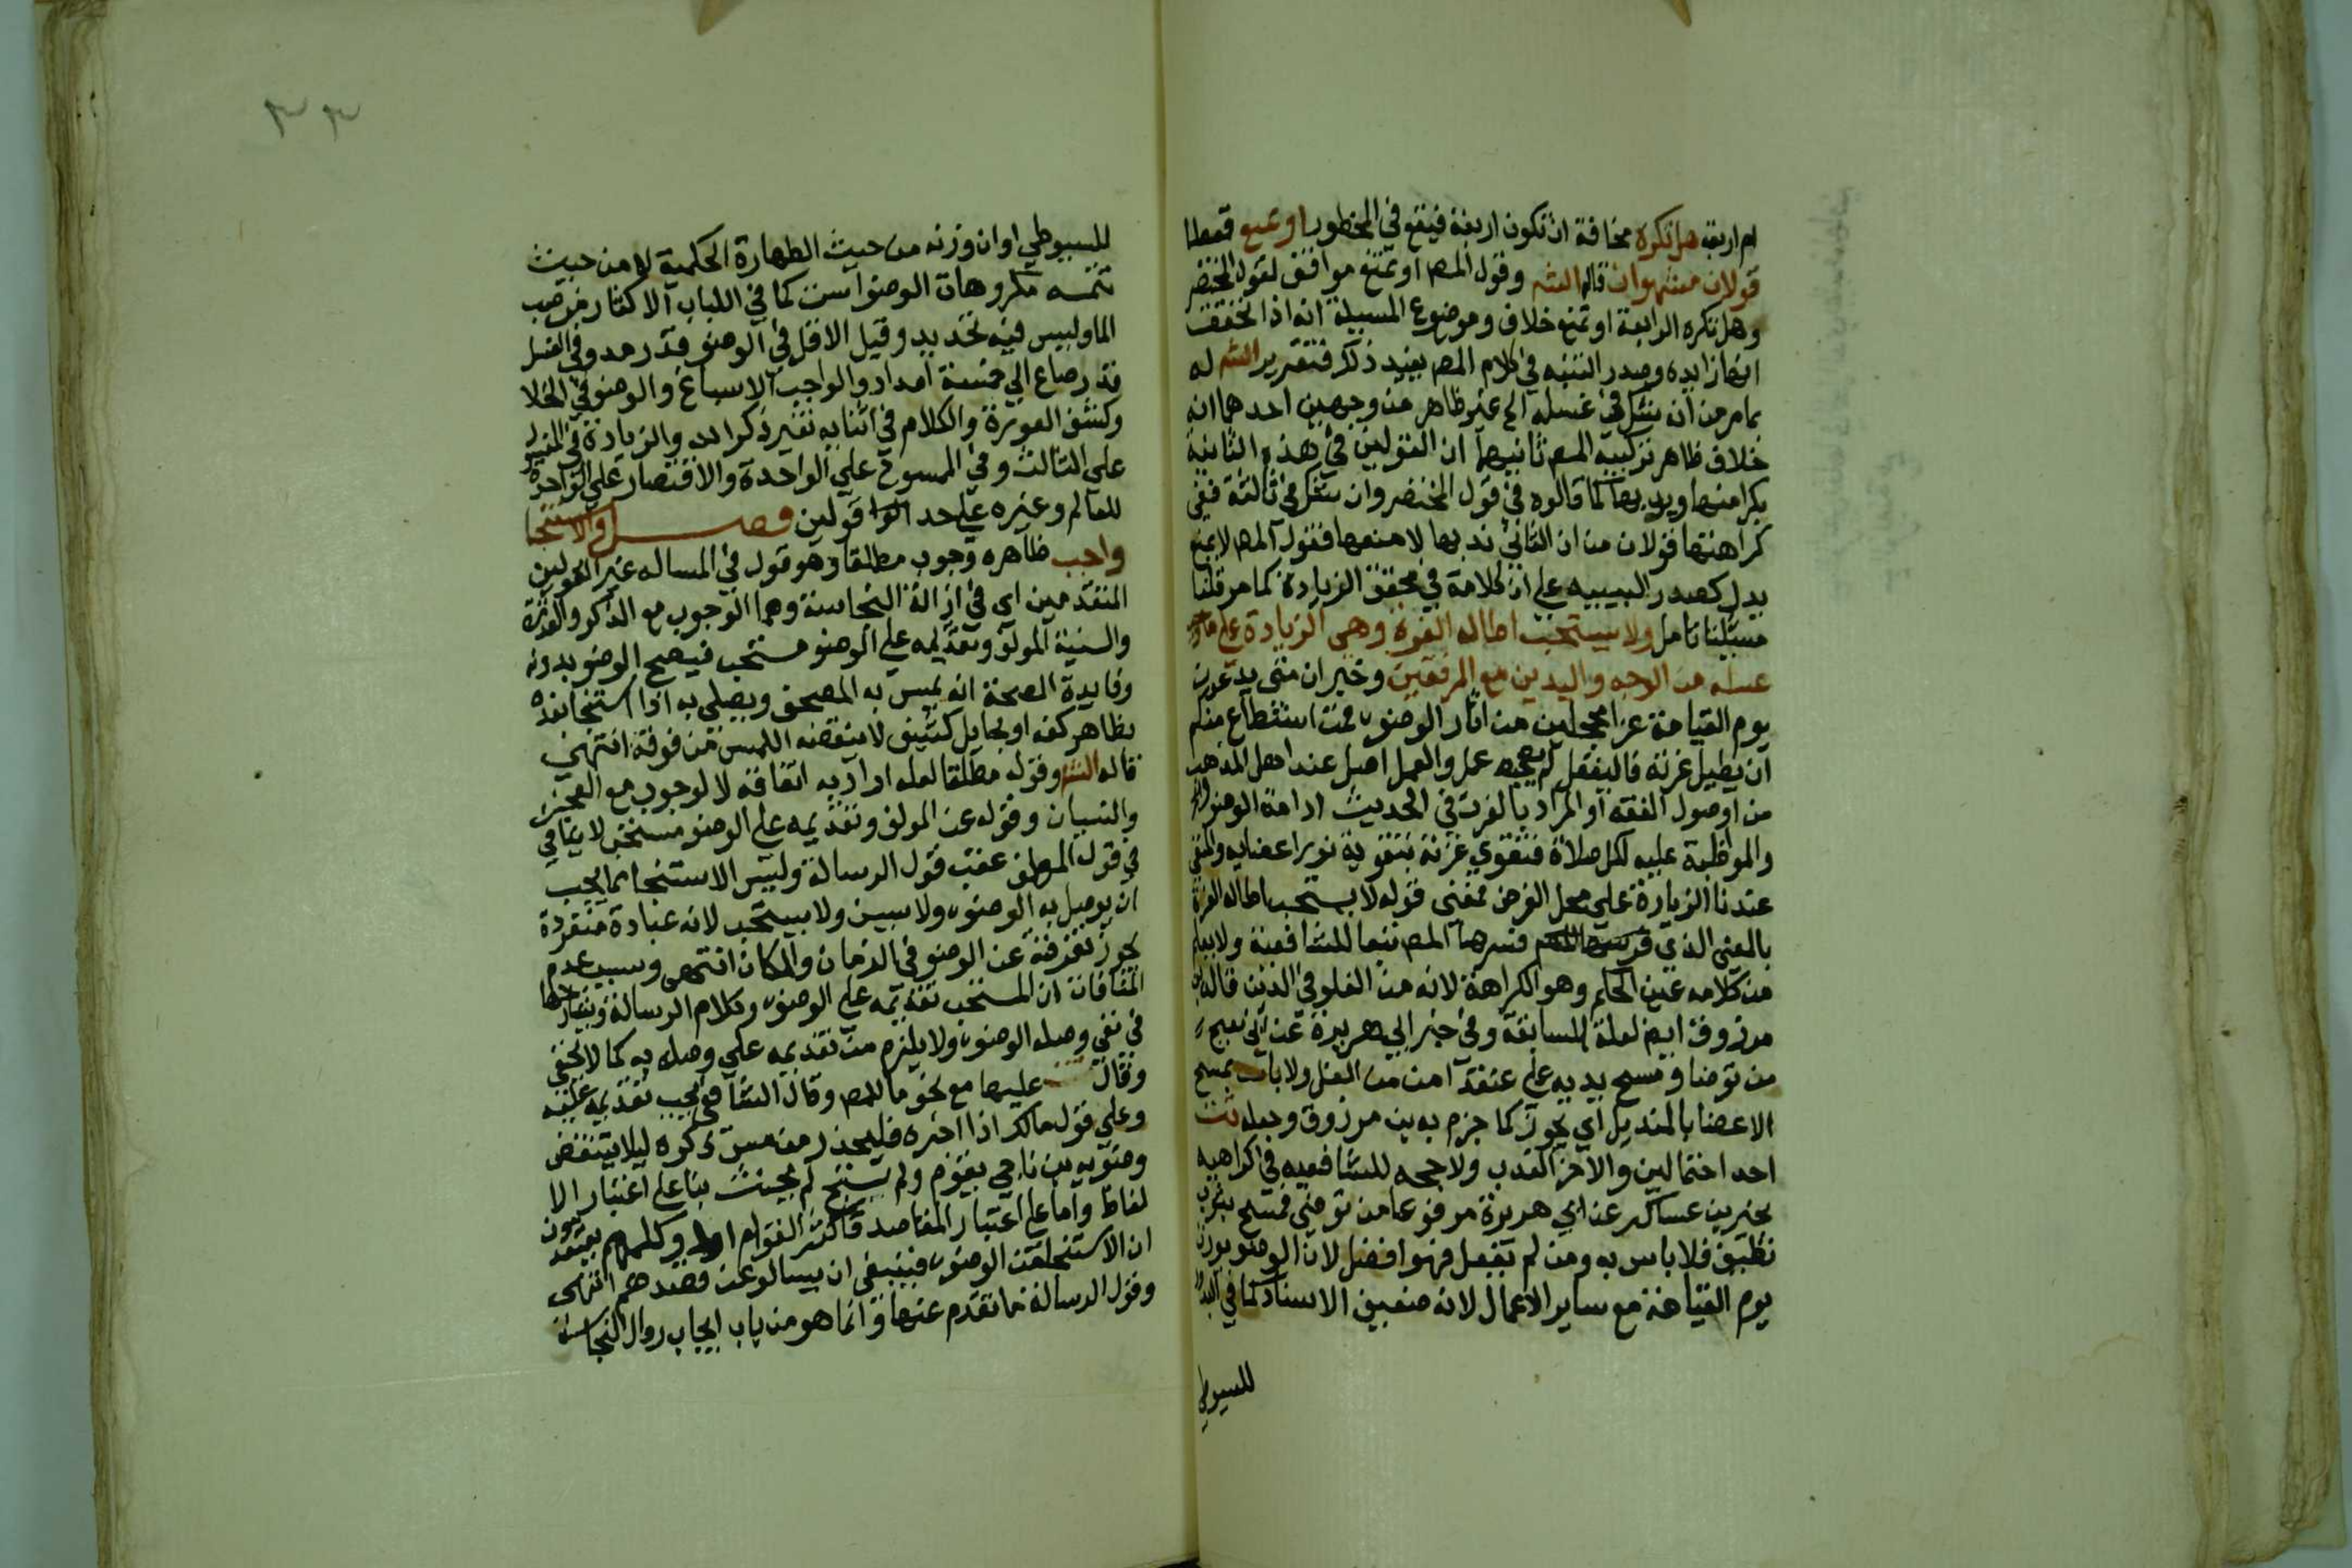 ام اربعة هل تكره مخافة ان تكون اربعة فيقع في المحظور او تمنع قطعا
قولان مشهوران قاله الشـ وقول المصـ او تمنع موافق لقول المختصر
وهل تكره الرابعة او تمنع خلاف وموضوع المسيلة انه اذا تحققت
انها زايدة وصدر التنبيه في كلام المصـ يفيد ذلك فتقرير الشـ له
بما مر من ان شك في غسله الخ غير ظاهر من وجهين احدهما انه
خلاف ظاهر تركيب المصـ ثانيهما ان القولين في هذه الثانية
بكراهتها وبندبها كما قالوه في قول المختصر وان شك في ثالثة ففي
كراهتها قولان من ان الثاني ندبها لا منعها فقول المصـ لا يمنع
يدل كصدر التنبيه على ان كلامه في محقق الزيادة كما مر قلنا
مسيلتنا تامل ولا يستحب اطالة الغرة وهي الزيادة على ما
غسله من الوجه واليدين مع المرفقين وخبر ان امتى يدعون
يوم القيامة غرا محجلين من اثار الوضوء فمن استطاع منكم
ان يطيل غرته فاليفعل لم يصحبه عمل والعمل اصل عند اهل المذهب
من اوصول الفقه او المراد بالغرة في الحديث ادامة الوضوء
والمواظبة عليه لكل صلاة فتقوي غرته بتقوية نور اعضايه والمنفي
عندنا الزيادة على محل الفرض فمعنى قوله لا يستحب اطالة الغرة
بالمعنى الذي فسرها المصـ تبعا للشافعية ولا يعلم
من كلامه عين الحكم وهو الكراهة لانه من الغلو في الدين قاله
مرزوق ايضـ لعلة المسابقة وفي خبر ابي هريرة عن ابي نعيم
من توضا ومسح يديه على عنقه امن من الغل ولا باس بمسح
الاعضا بالمنديل اي يجوز كما جزم به بن مرزوق وجعله تت
احد احتمالين والاخر الندب ولا حجة للشافعيه في كراهيه
بخبر بن عساكر عن ابي هريرة مرفوعا من توضى فمسح بثوب
نظيف فلا باس به ومن لم يفعل فهو افضل لان الوضو يوزن
يوم القيامة مع ساير الاعمال لانه ضعيف الاسناد كما في البدور
للسيوطي
٣٣
للسيوطي او ان وزنه من حيث الطهارة الحكمية لا من حيث
تتمـه مكروهات الوضوء ست كما في اللباب الاكثار من صب
الما وليس فيه تحديد وقيل الاقل في الوضو قدر مد وفي الغسل
قدر صاع الي خمسة امداد والواجب الاسباغ والوضو في الخلا
وكشف العورة والكلام في اثنايه بغير ذكر الله والزيادة في المغسول
على الثالث وفي الممسوح على الواحدة والاقتصار على الواحدة
للعالم وغيره على احد قولين فصـــل والاستنجا
واجب ظاهره وجوب مطلقا وهو قول في المسالة غير القولين
المتقدمين اي في ازالة النجاسة وهما الوجوب مع الذكر والقدرة
والسنية المولف وتقديمه على الوضو مستحب فيصح الوضو بدونه
وفايدة الصحة انه يمس به المصحف ويصلي به اذا استنجا بعده
بظاهر كفه او بحايل كثيف لا ينقضه اللمس من فوقه انتهى
قاله الشـ وقوله مطلقا لعله اراد به اتفاقه لا لوجوب مع العجز
والنسيان وقوله عن المولف وتقديمه على الوضو مستحب لا ينافي
في قول المولف عقب قول الرسالة وليس الاستنجا مما يجب
ان يوصل به الوضوء ولا يسن ولا يستحب لانه عبادة منفردة
يجوز تفرقته عن الوضو في الزمان والمكان انتهى وسبب عدم
المنافات ان المستحب تقديمه على الوضوء وكلام الرسالة وشارحها
في نفي وصله الوضوء ولا يلزم من تقديمه على وصله به كما لا يخفى
وقال عليها مع نحو ما للمصـ وقال الشافعي يجب تقديمه عليه
وعلى قول مالك اذا اخره فليحذر من مس ذكره ليلا ينتقض
وضوه بن ناجي بقوم ولم يستنج لم يحنث بنا على اعتبار الا
لفاظ واما على اعتبار المقاصد فاكثر العوام او كلهم يعتقدون
ان الاستنجا من الوضوء فينبغى ان يسالوا عن قصدهم انتهى
وقول الرسالة ما تقدم عنها وانما هو من باب ايجاب زوال النجاسة